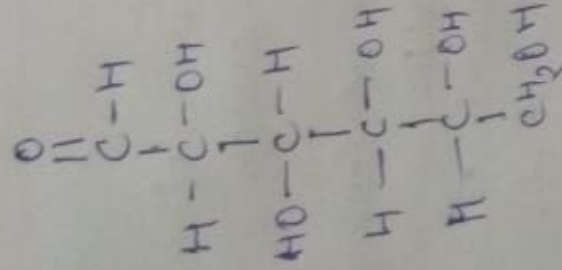 O
||
C - H
|
H - C - OH
|
HO - C - H
|
H - C - OH
|
H - C - OH
|
CH2OH